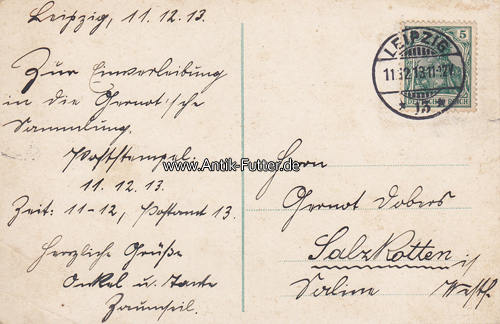 Leipzig, 11.12.13.
Zur Einverleibung
in die Gernot'sche
Sammlung.
Poststempel:
11. 12. 13.
Zeit: 11-12, Postamt 13.
Herzliche Grüße
Onkel u. Tante
Zaumseil.
LEIPZIG
11.12.13.11-12V
* 13 *
5
DEUTSCHES REICH
www.Antik-Futter.de
Herrn
Gernot Dobers
Salzkotten i/
Westf.